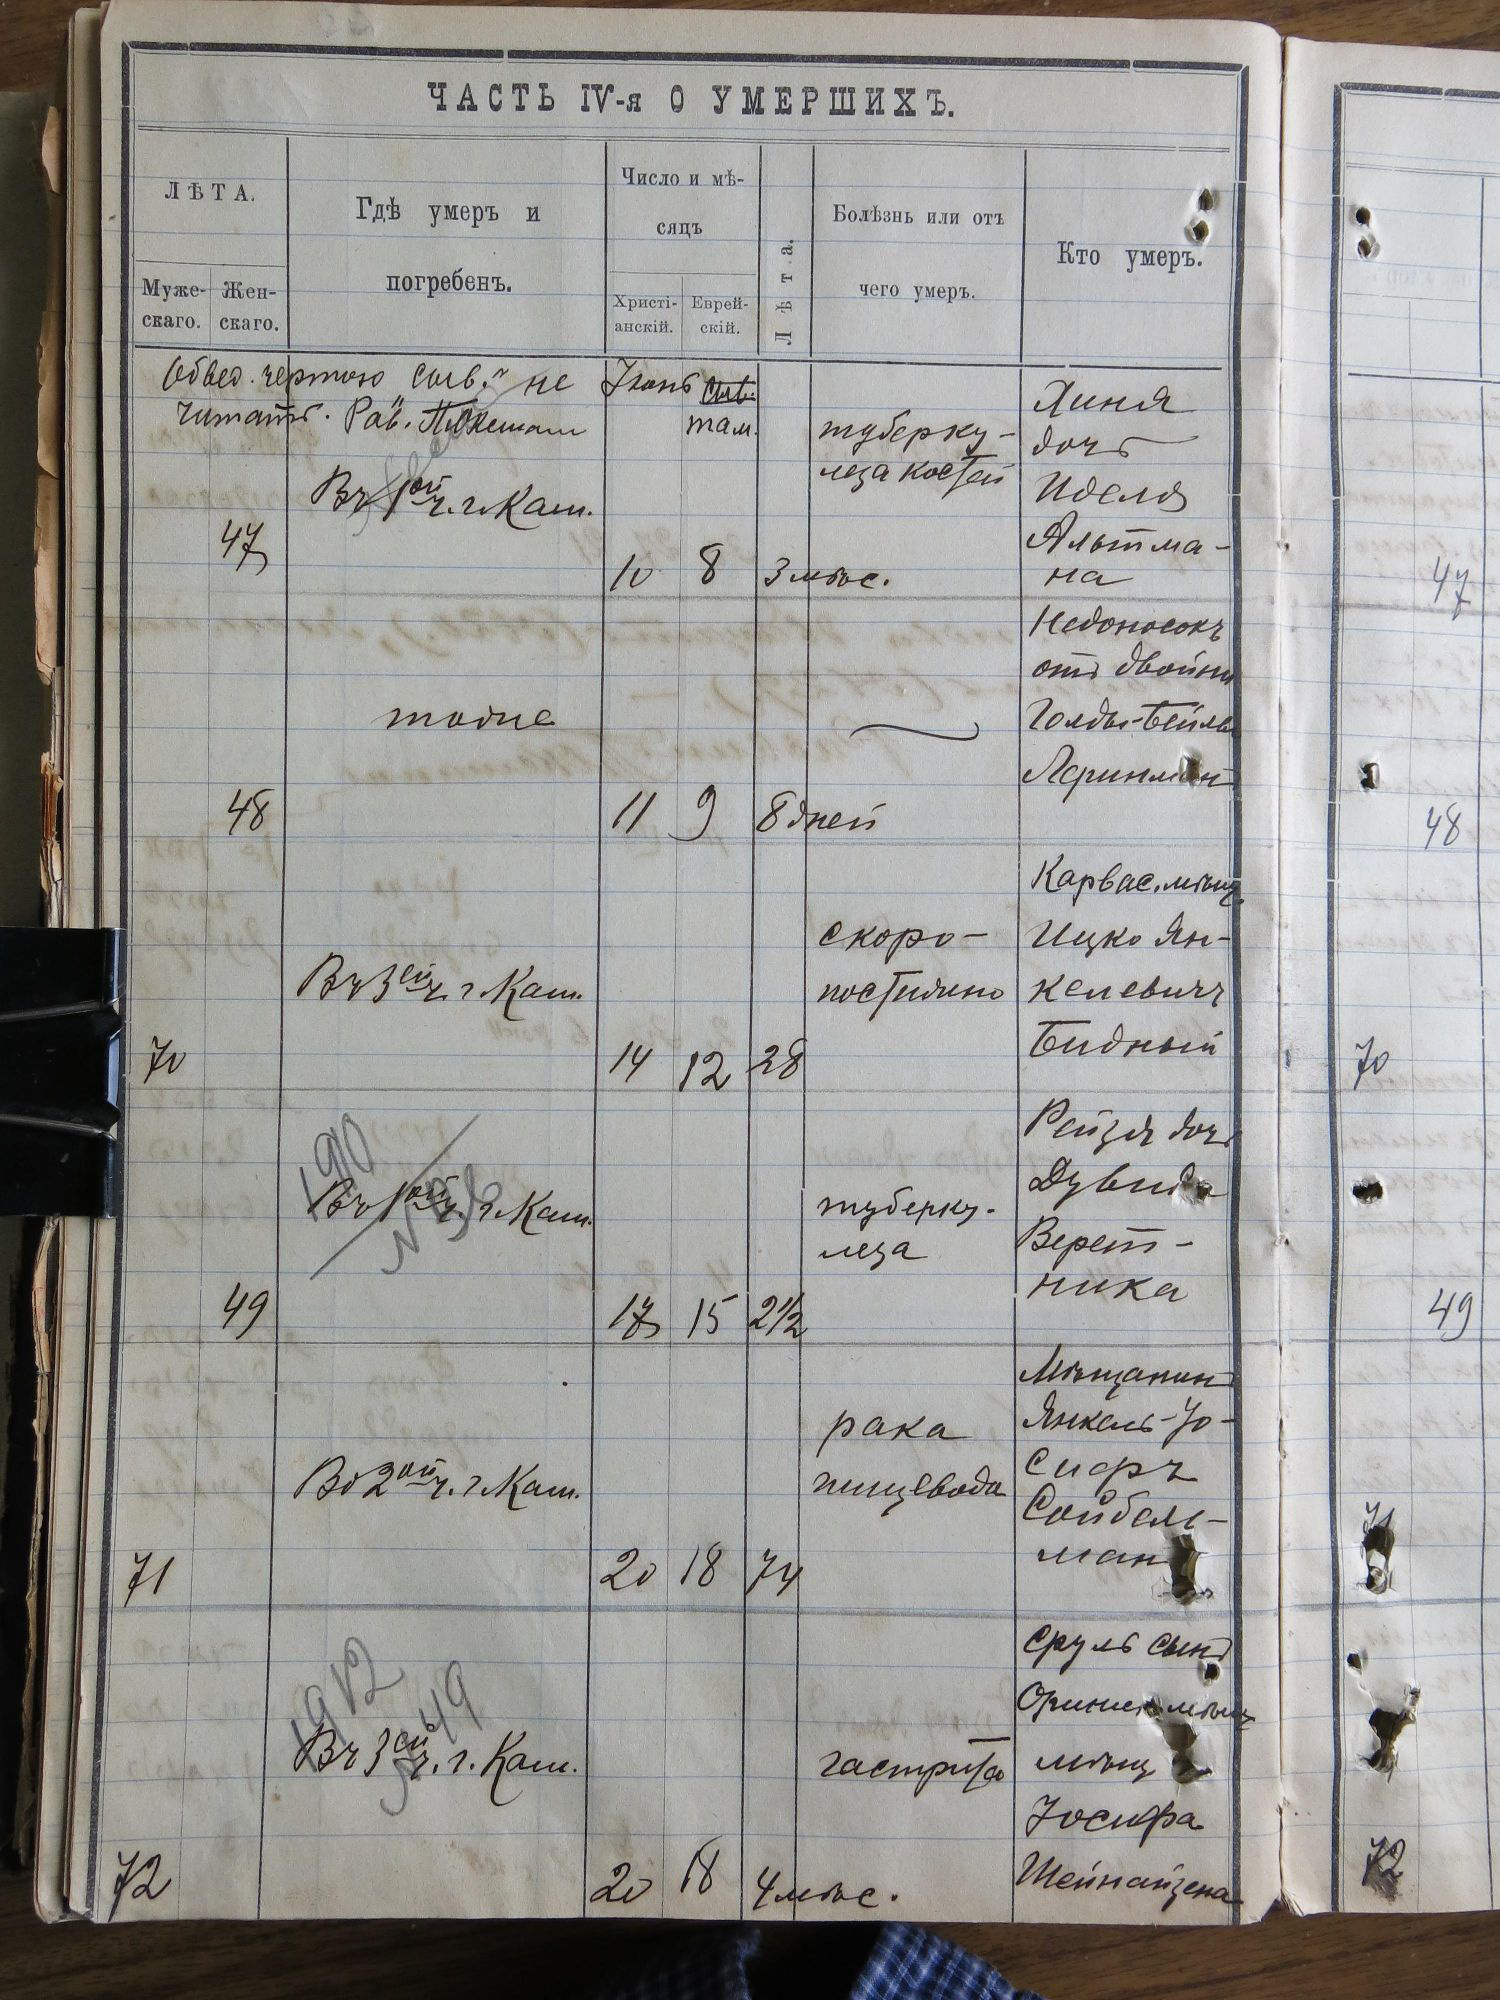 ЧАСТЬ IV-я О УМЕРШИХЪ.
ЛѢТА.
Муже-
скаго.
Жен-
скаго.
Гдѣ умеръ и
погребенъ.
Число и мѣ-
сяцъ
Христі-
анскій.
Еврей-
скій.
Лѣта.
Болѣзнь или отъ
чего умеръ.
Кто умеръ.
Обвед. чертою слов. не
читать. Рав.
Іюнь
там.
47
Въ 1ой ч. г. Кам.
10
8
3 мѣс.
туберку-
леза костей
Хиня
дочь
Иделя
Альтма-
на
47
48
тоже
11
9
8 дней
Недоносокъ
отъ двойни
Голды-Бейлы
48
70
Въ 3ей ч. г. Кам.
14
12
28
скоро-
постижно
Карвас. мѣщ.
Ицко Ян-
келевичъ
Бидный
70
1910
№ 36
49
Въ 1ой ч. г. Кам.
17
15
2 1/2
туберку-
леза
Рейзя дочь
Дувида
Верет-
ника
49
71
Во 2ой ч. г. Кам.
20
18
74
рака
пищевода
Мѣщанинъ
Янкель-Іо-
сифъ
Сойбель-
ман
71
1912
№ 49
72
Въ 3ей ч. г. Кам.
20
18
4 мѣс.
гастрита
Сруль сынъ
мѣщ
Іосифа
Шейнайзена
72